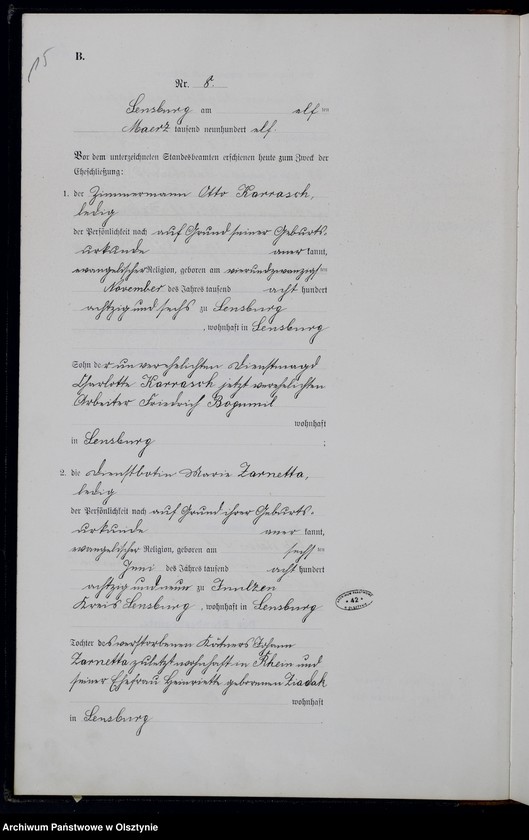 B.
Nr. 8.
Sensburg am elf ten
Maerz tausend neunhundert elf
Vor dem unterzeichneten Standesbeamten erschienen heute zum Zweck der
Eheschließung:
1. der Zimmermann Otto Karrasch,
ledig
der Persönlichkeit nach auf Grund seiner Geburts-
urkunde aner kannt,
evangelischer Religion, geboren am vierundzwanzigs ten
November des Jahres tausend acht hundert
achtzig und sechs zu Sensburg
, wohnhaft in Sensburg
Sohn der unverehelichten Dienstmagd
Charlotte Karrasch jetzt verehelichten
Arbeiter Friedrich Bogumil
wohnhaft
in Sensburg ;
2. die Dienstbotin Marie Zarnetta,
ledig
der Persönlichkeit nach auf Grund ihrer Geburts-
urkunde aner kannt,
evangelischer Religion, geboren am sechs ten
Juni des Jahres tausend acht hundert
achtzig und neun zu
Kreis Sensburg, wohnhaft in Sensburg
42
Tochter des verstorbenen Kätners Johann
Zarnetta zuletzt wohnhaft in Rhein und
seiner Ehefrau Henriette geborenen
wohnhaft
in Sensburg
Archiwum Państwowe w Olsztynie